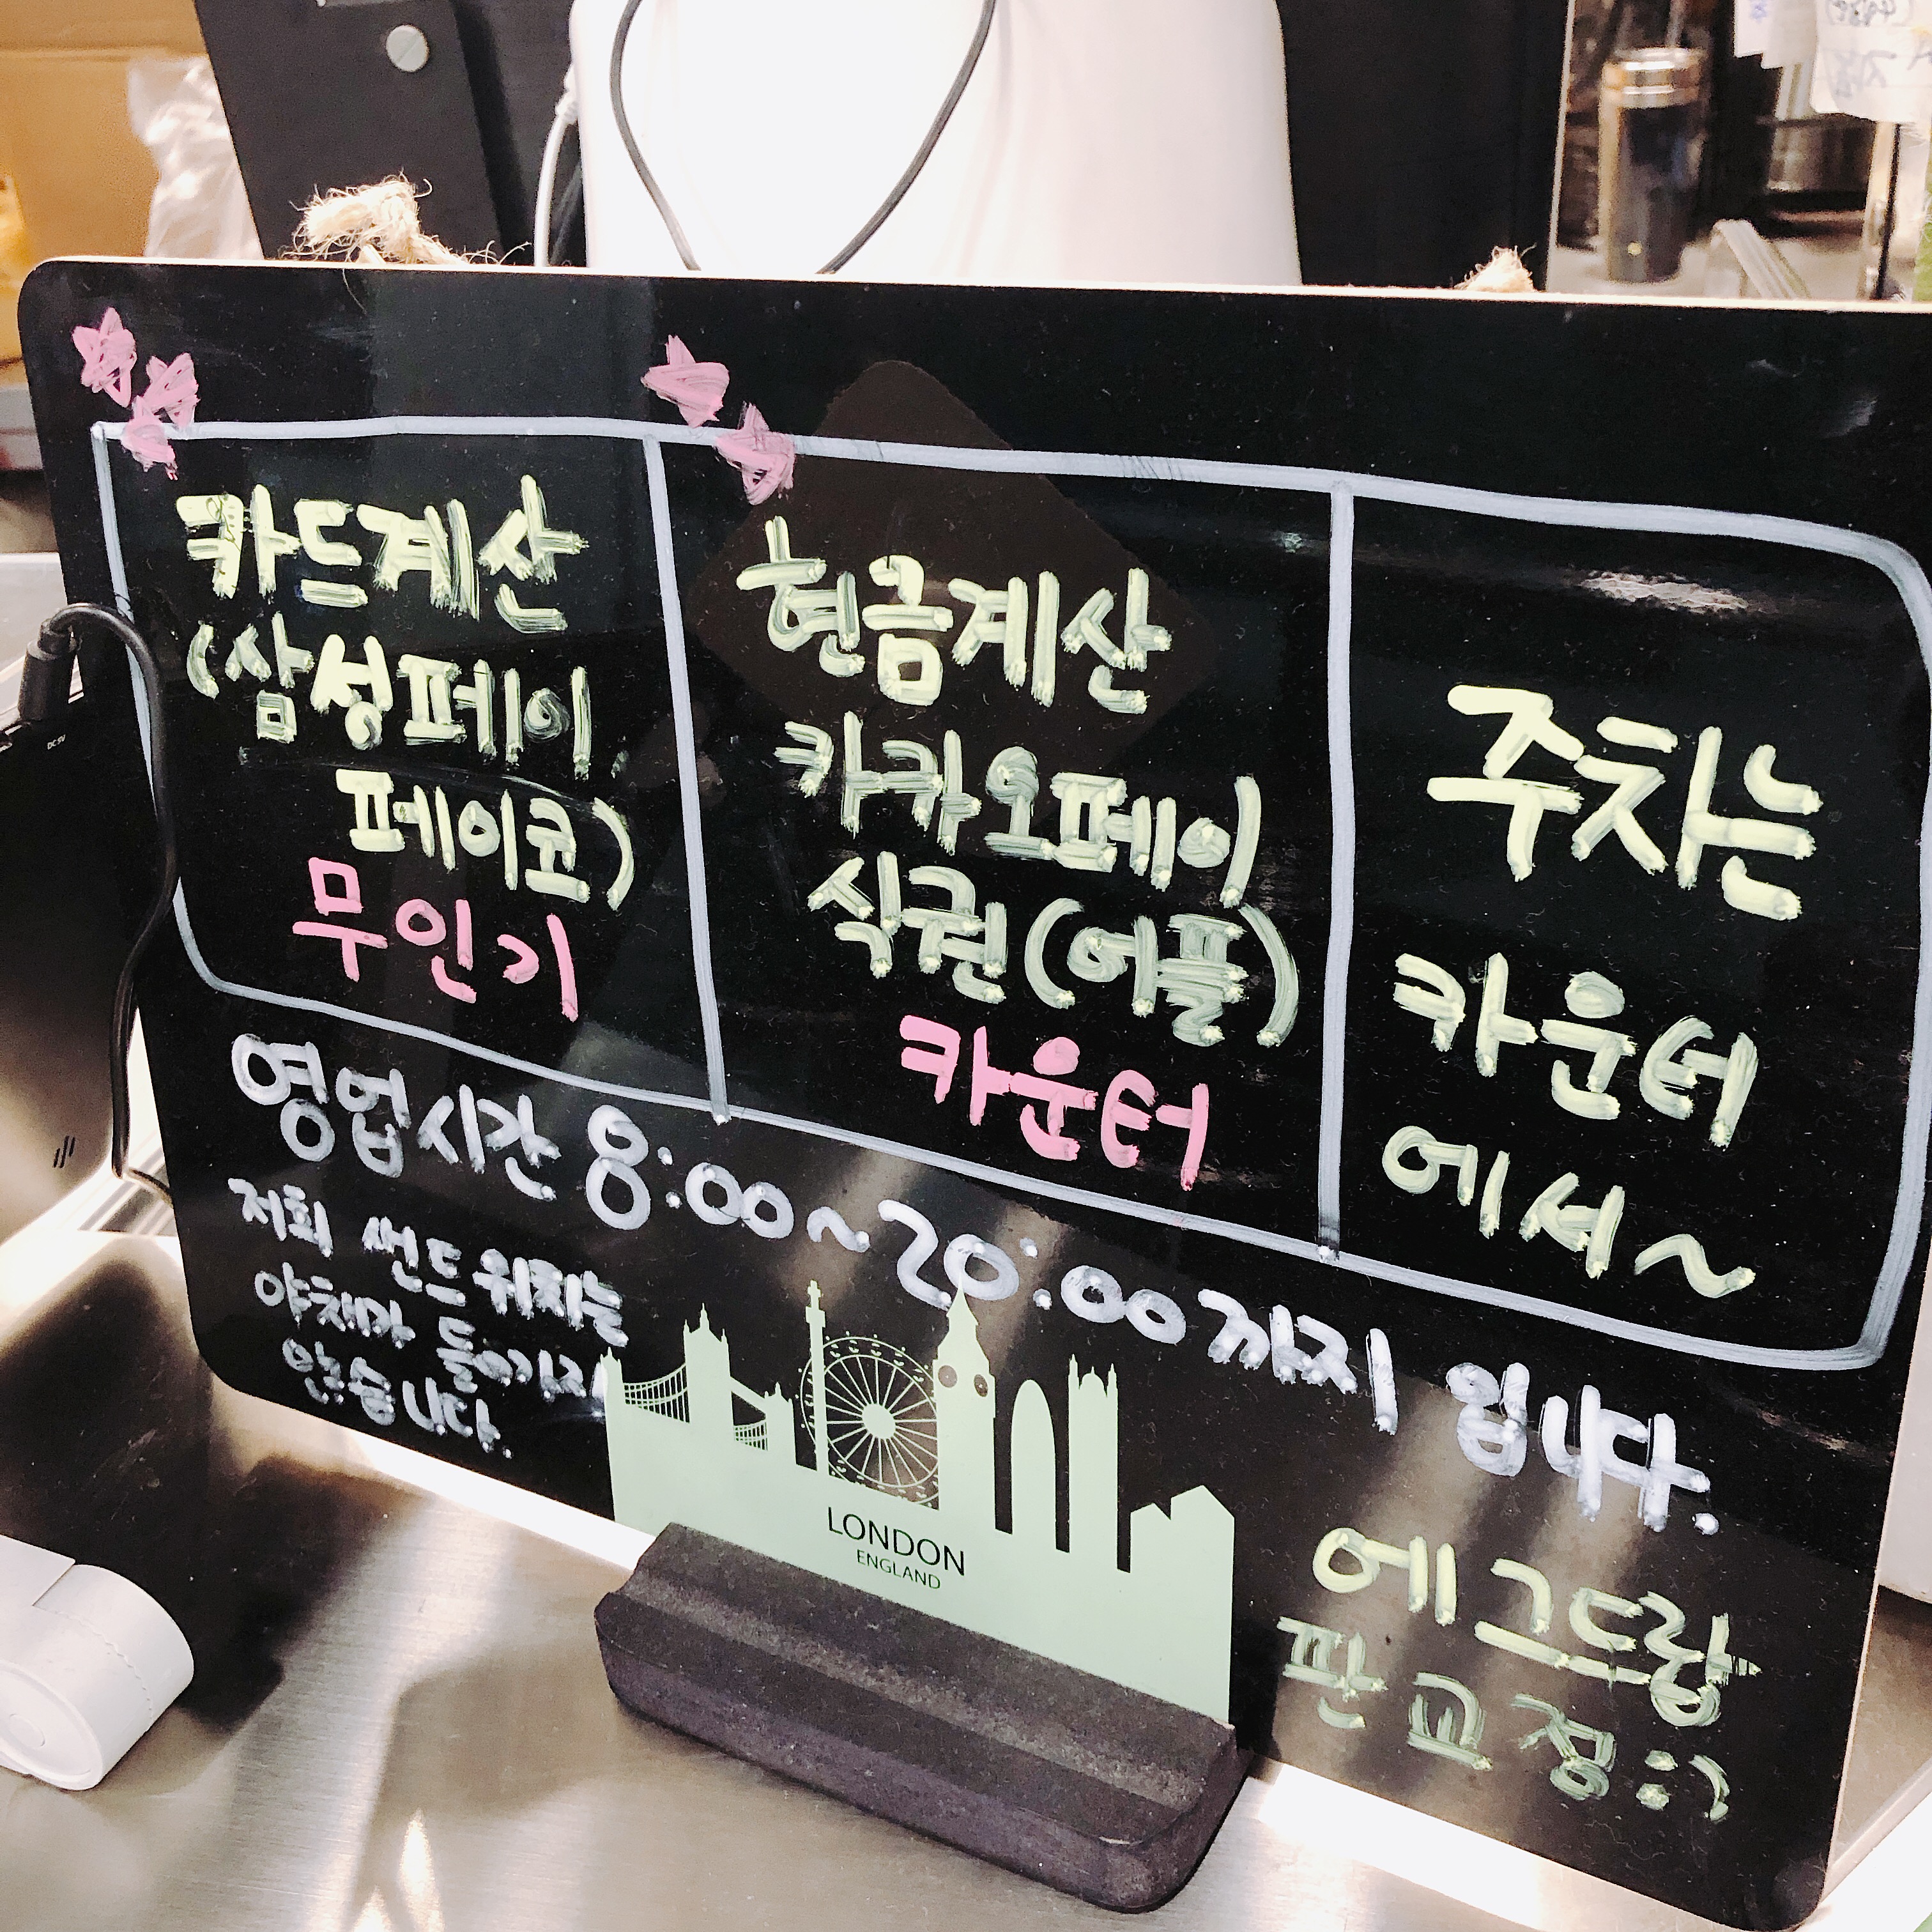 카드계산
(삼성페이,
페이코)
무인기
현금계산
카카오페이
식권(어플)
카운터
주차는
카운터
에서~
영업시간 8:00~20:00까지 입니다.
저희 썬드위치는
야채가 들어가지
않습니다.
LONDON
ENGLAND
에그드랑
판교점:)
DC 5V